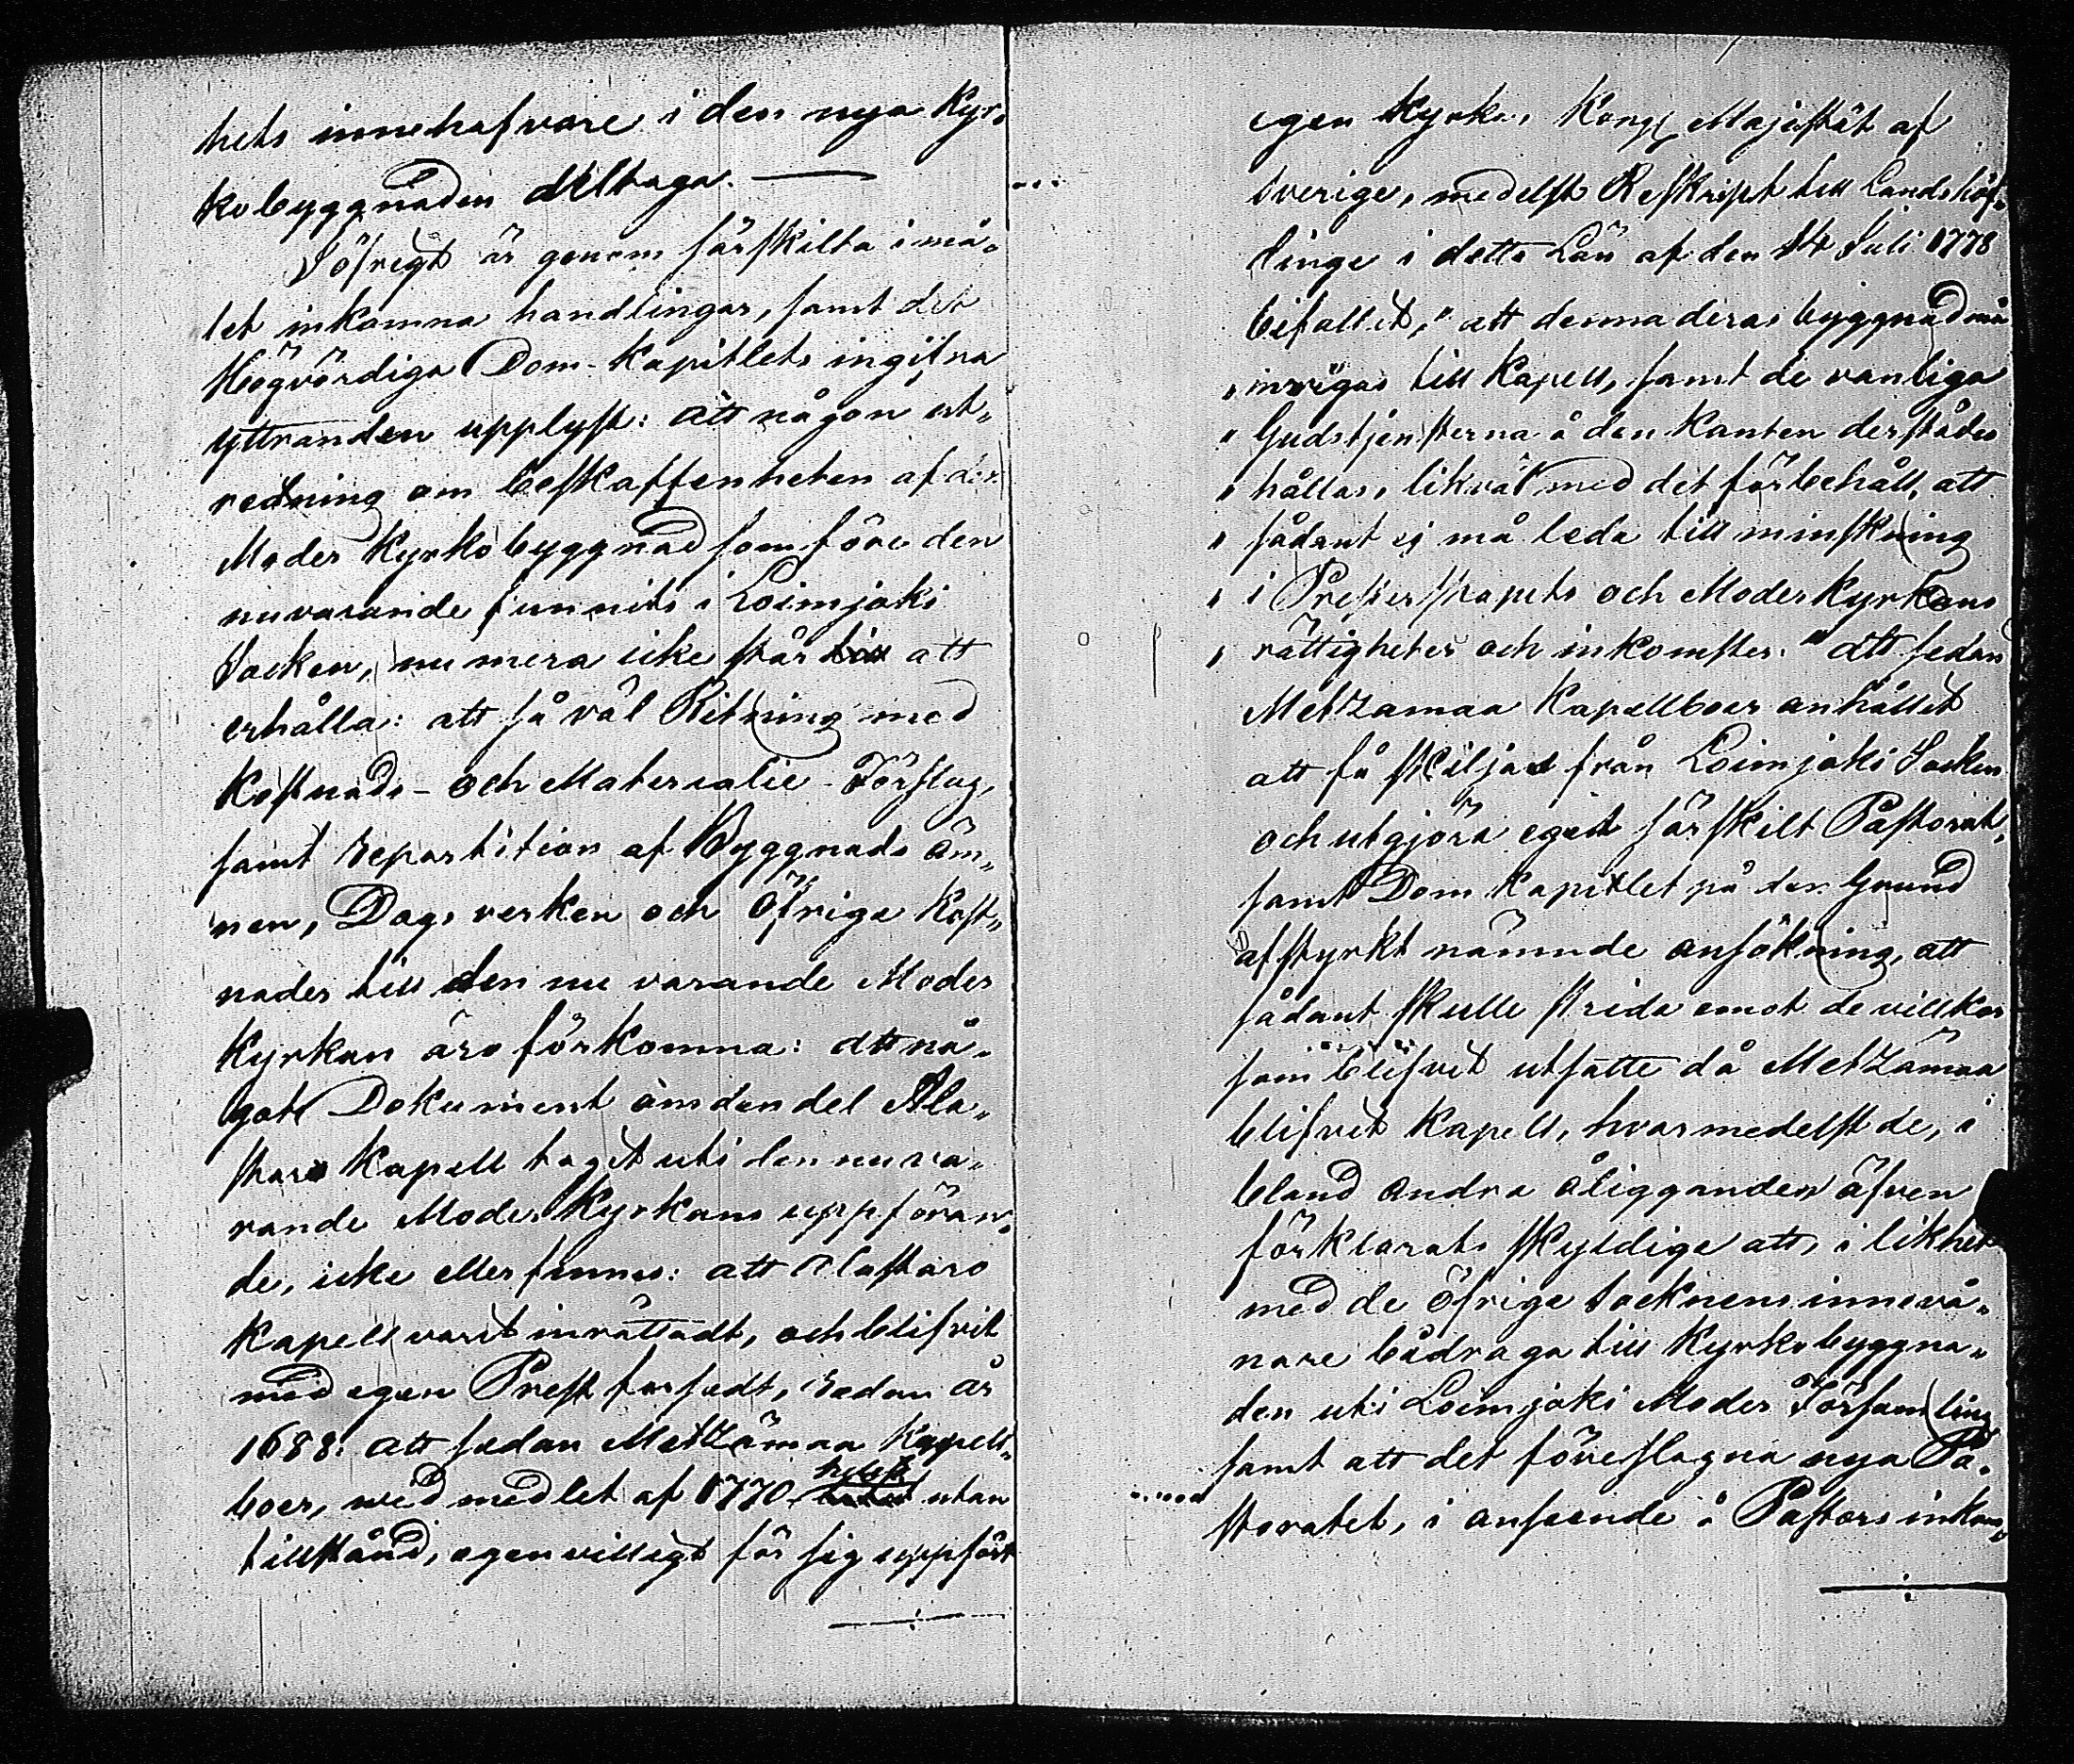 hets innehafvare i den nya Kyr„
kobyggnaden deltaga. —
Iöfrigt är genom särskilta i må„
let inkomna handlingar, samt det
Högvördiga Dom-Kapitlets ingifna
yttranden upplyst: att någon ut„
redning om beskaffenheten af den
Moder Kyrkobyggnad som före den
nuvarande funnits i Loimjoki
Socken, nu mera icke står att
erhålla: att så väl Ritning med
Kostnads- och Materialie-Förslag,
samt repartition af Byggnads äm„
nen, Dagsverken och öfriga Kost„
nader till den nu varande Moder
Kyrkan äro förkomna: att nå„
got Dokument om den del Ala„
staro Kapell tagit uti den nuva„
rande Moder Kyrkans uppföran„
de, icke eller finnes: att Alastaro
Kapell varit inrättadt, och blifvit
med egen Prest försedt, sedan år
1688: att sedan Metzämaa Kapell„
boer, wid medlet af 1770 utan
tillstånd, egenvilligt för sig uppfört
egen Kyrka, Kongl Majestät af
Sverige, medelst Reskript till Landshöf„
dinge i detta Län af den 14 Juli 1778
bifallit, "att denna deras byggnad må
" invigas till Kapell, samt de vanliga
" Gudstjensterna å den Kanten derstädes
" hållas, likväl med det förbehåll, att
" sådant ej må leda till minskning
" i Presterskapets och Moderkyrkans
" rättigheter och inkomster." att sedan
Metzämaa Kapellboer anhållit
att få skiljas från Loimjoki Socken
och utgjöra eget särskilt Pastorat,
samt Dom Kapitlet på den Grund
afstyrkt nämnde ansökning, att
sådant skulle strida emot de villkor
som blifvit utsatte då Metzämaa
blifvit Kapell, hvarmedelst de, i
bland andra åligganden äfven
förklarats skyldige att, i likhet
med de öfrige Socknens innevå„
nare bidraga till Kyrkobyggna„
den uti Loimjoki Moder Församling
samt att det föreslagna nya Pa„
storatet, i anseende å Pastors inkom„